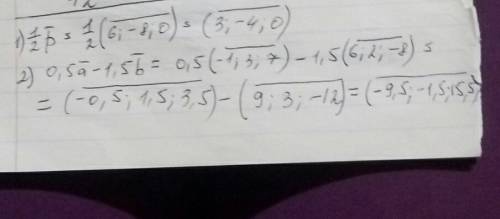 1) 1/2 p̄ = 1/2 (6; -8; 0) = (3; -4, 0)
2) 0,5ā - 1,5b̄ = 0,5(-1; 3; 7) - 1,5(6; 2; -8) =
= (-0,5; 1,5; 3,5) - (9; 3; -12) = (-9,5; -1,5; 15,5)